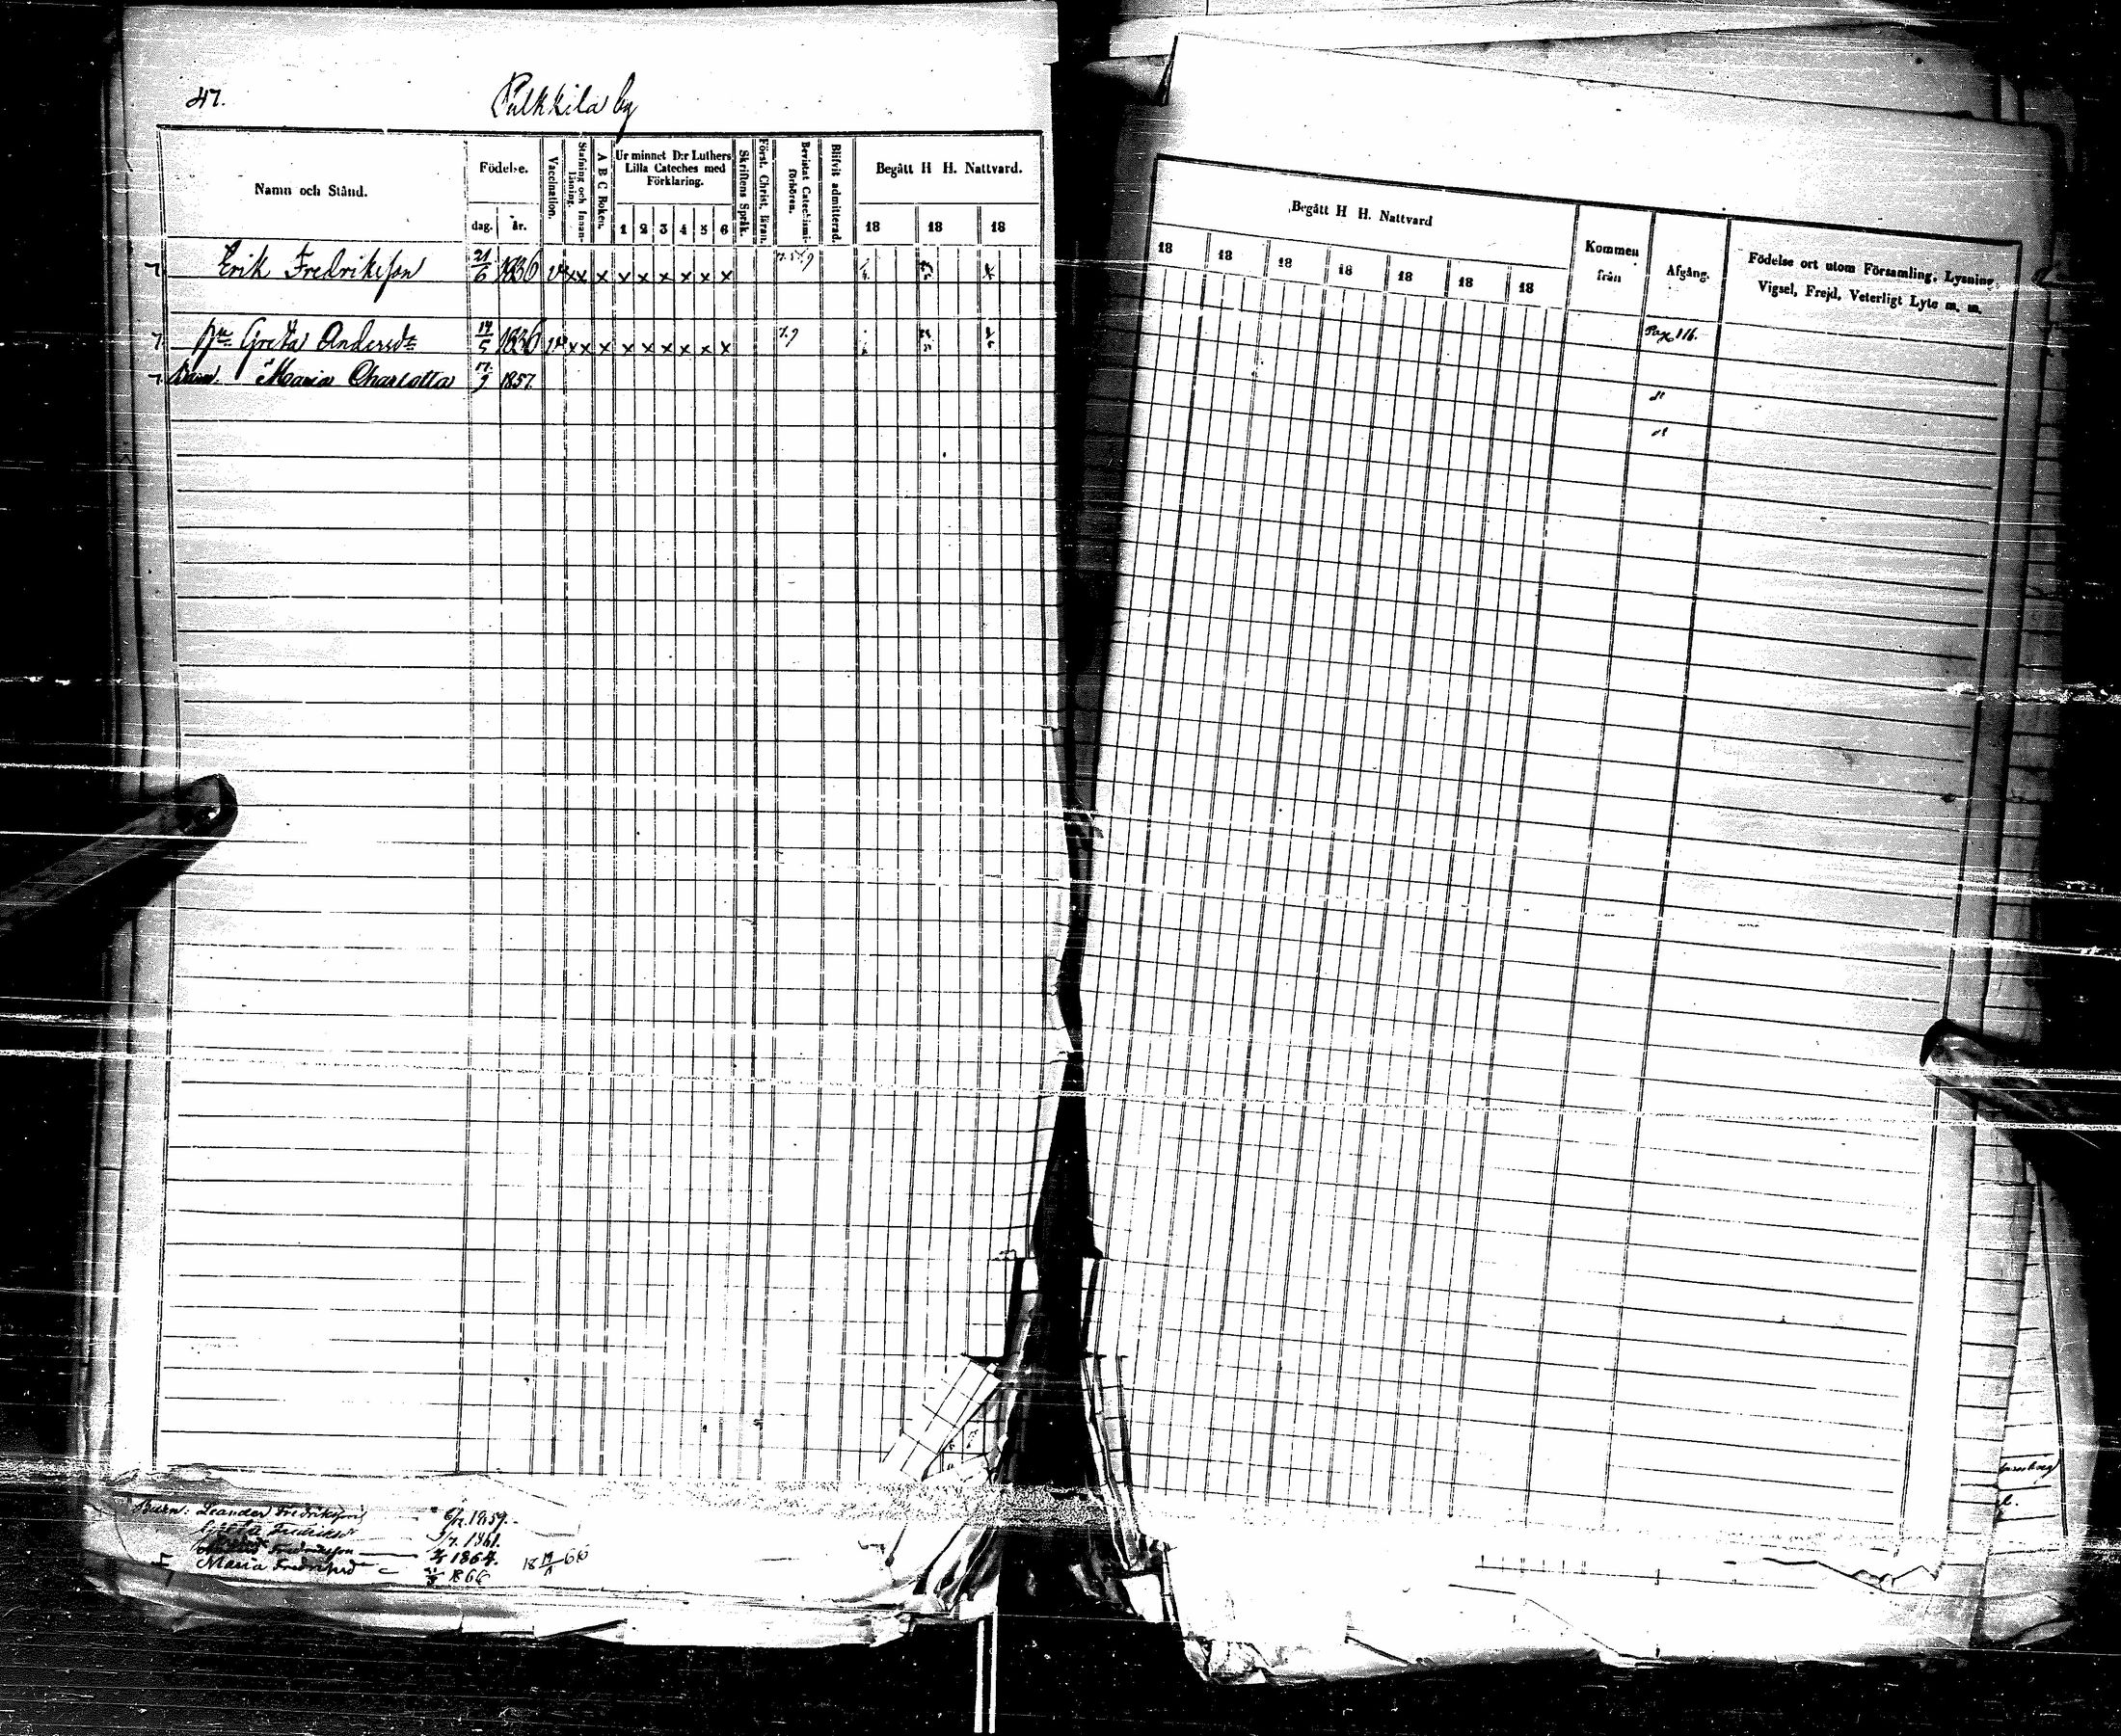 47.
Pulkkila by
Namn och Stånd.
Födelse.
dag.
år.
Vaccination.
Stafning och Innanläsning.
A B C Boken.
Ur minnet D:r Luthers Lilla Cateches med Förklaring.
1 2 3 4 5 6
Skriftens Språk.
Först. Christ. läran.
Bevistat Catechismiförhören.
Blifvit admitterad.
Begått H H. Nattvard.
18 18 18
Erik Fredriksson 21/6 1836 v x x x x x x x x x
Greta Andersdr 19/5 1836 v x x x x x x x x x
Barn. Maria Charlotta 17/9 1857.
Barn: Leander Fredriksson 1859.
Fredriksdr 1/7. 1861.
Fredriksson 1864.
Maria Fredriksd 1866
Begått H H. Nattvard
18 18 18 18 18 18 18
Kommen från
Afgång.
Födelse ort utom Församling, Lysning, Vigsel, Frejd, Veterligt Lyte m. m.
Pag 116.
do
do